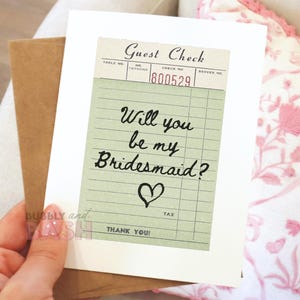 Guest Check
TABLE NO. NO. PERSONS CHECK NO. SERVER NO.
800529
Will you
be my
Bridesmaid?
TAX
THANK YOU!
BUBBLY and
BASH